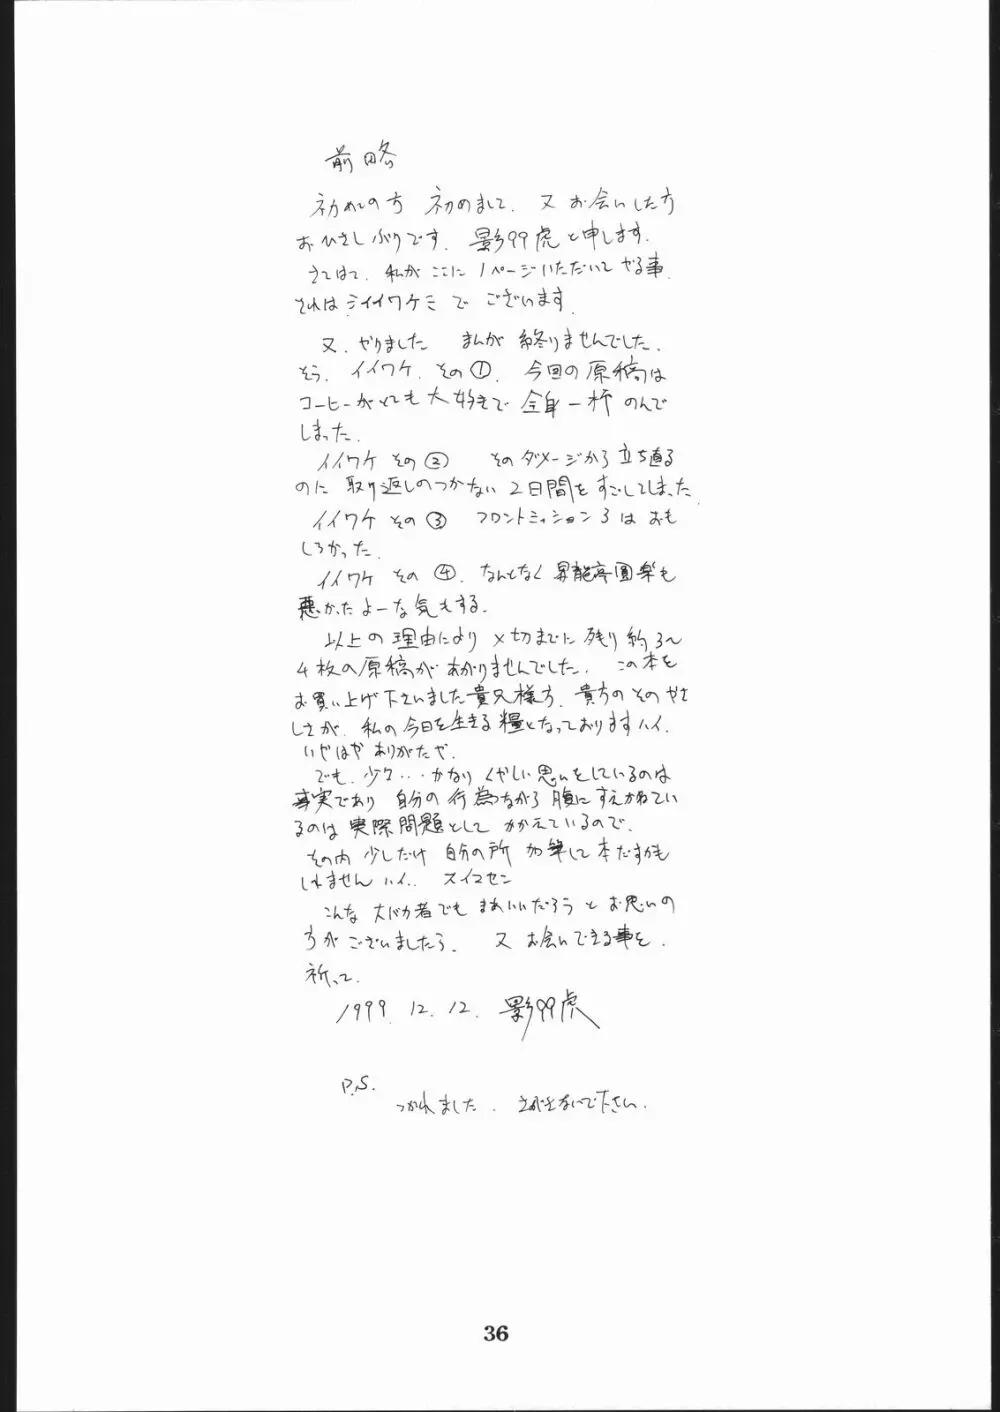 前略
初めての方 初めまして. 又 お会いした方
おひさしぶりです. 影99虎と申します.
さてはて. 私が ここに 1ページいただいて やる事.
それは ミイイワケミ で ございます.
又. やりました まんが 終りませんでした.
そう. イイワケ. その①. 今回の原稿は
コーヒーがとても大好きで 全身一杯 のんで
しまった.
イイワケ その② そのダメージから立ち直る
のに 取り返しのつかない 2日間をすごしてしまった.
イイワケ その③ フロントミッション3は おも
しろかった.
イイワケ その④. なんとなく 昇龍亭圓楽も
悪かったよーな気もする.
以上の理由により 〆切までに 残り約3〜
4枚の原稿が あがりませんでした. この本を
お買い上げ下さいました貴兄様方. 貴方の そのやさ
しさが. 私の今日を生きる糧となっておりますハイ.
いやはや ありがたや.
でも. 少々… かなり くやしい思いをしているのは
事実であり 自分の行為ながら 腹にすえかねてい
るのは 実際問題として かかえているので.
その内 少しだけ 自分の所 加筆して本だすかも
しれません ハイ.. スイマセン
こんな 大バカ者でも まあいいだろう と お思いの
方が ございましたら. 又 お会いできる事を.
祈って.
1999. 12. 12. 影99虎
P.S.
つかれました. さがさないで下さい.
36